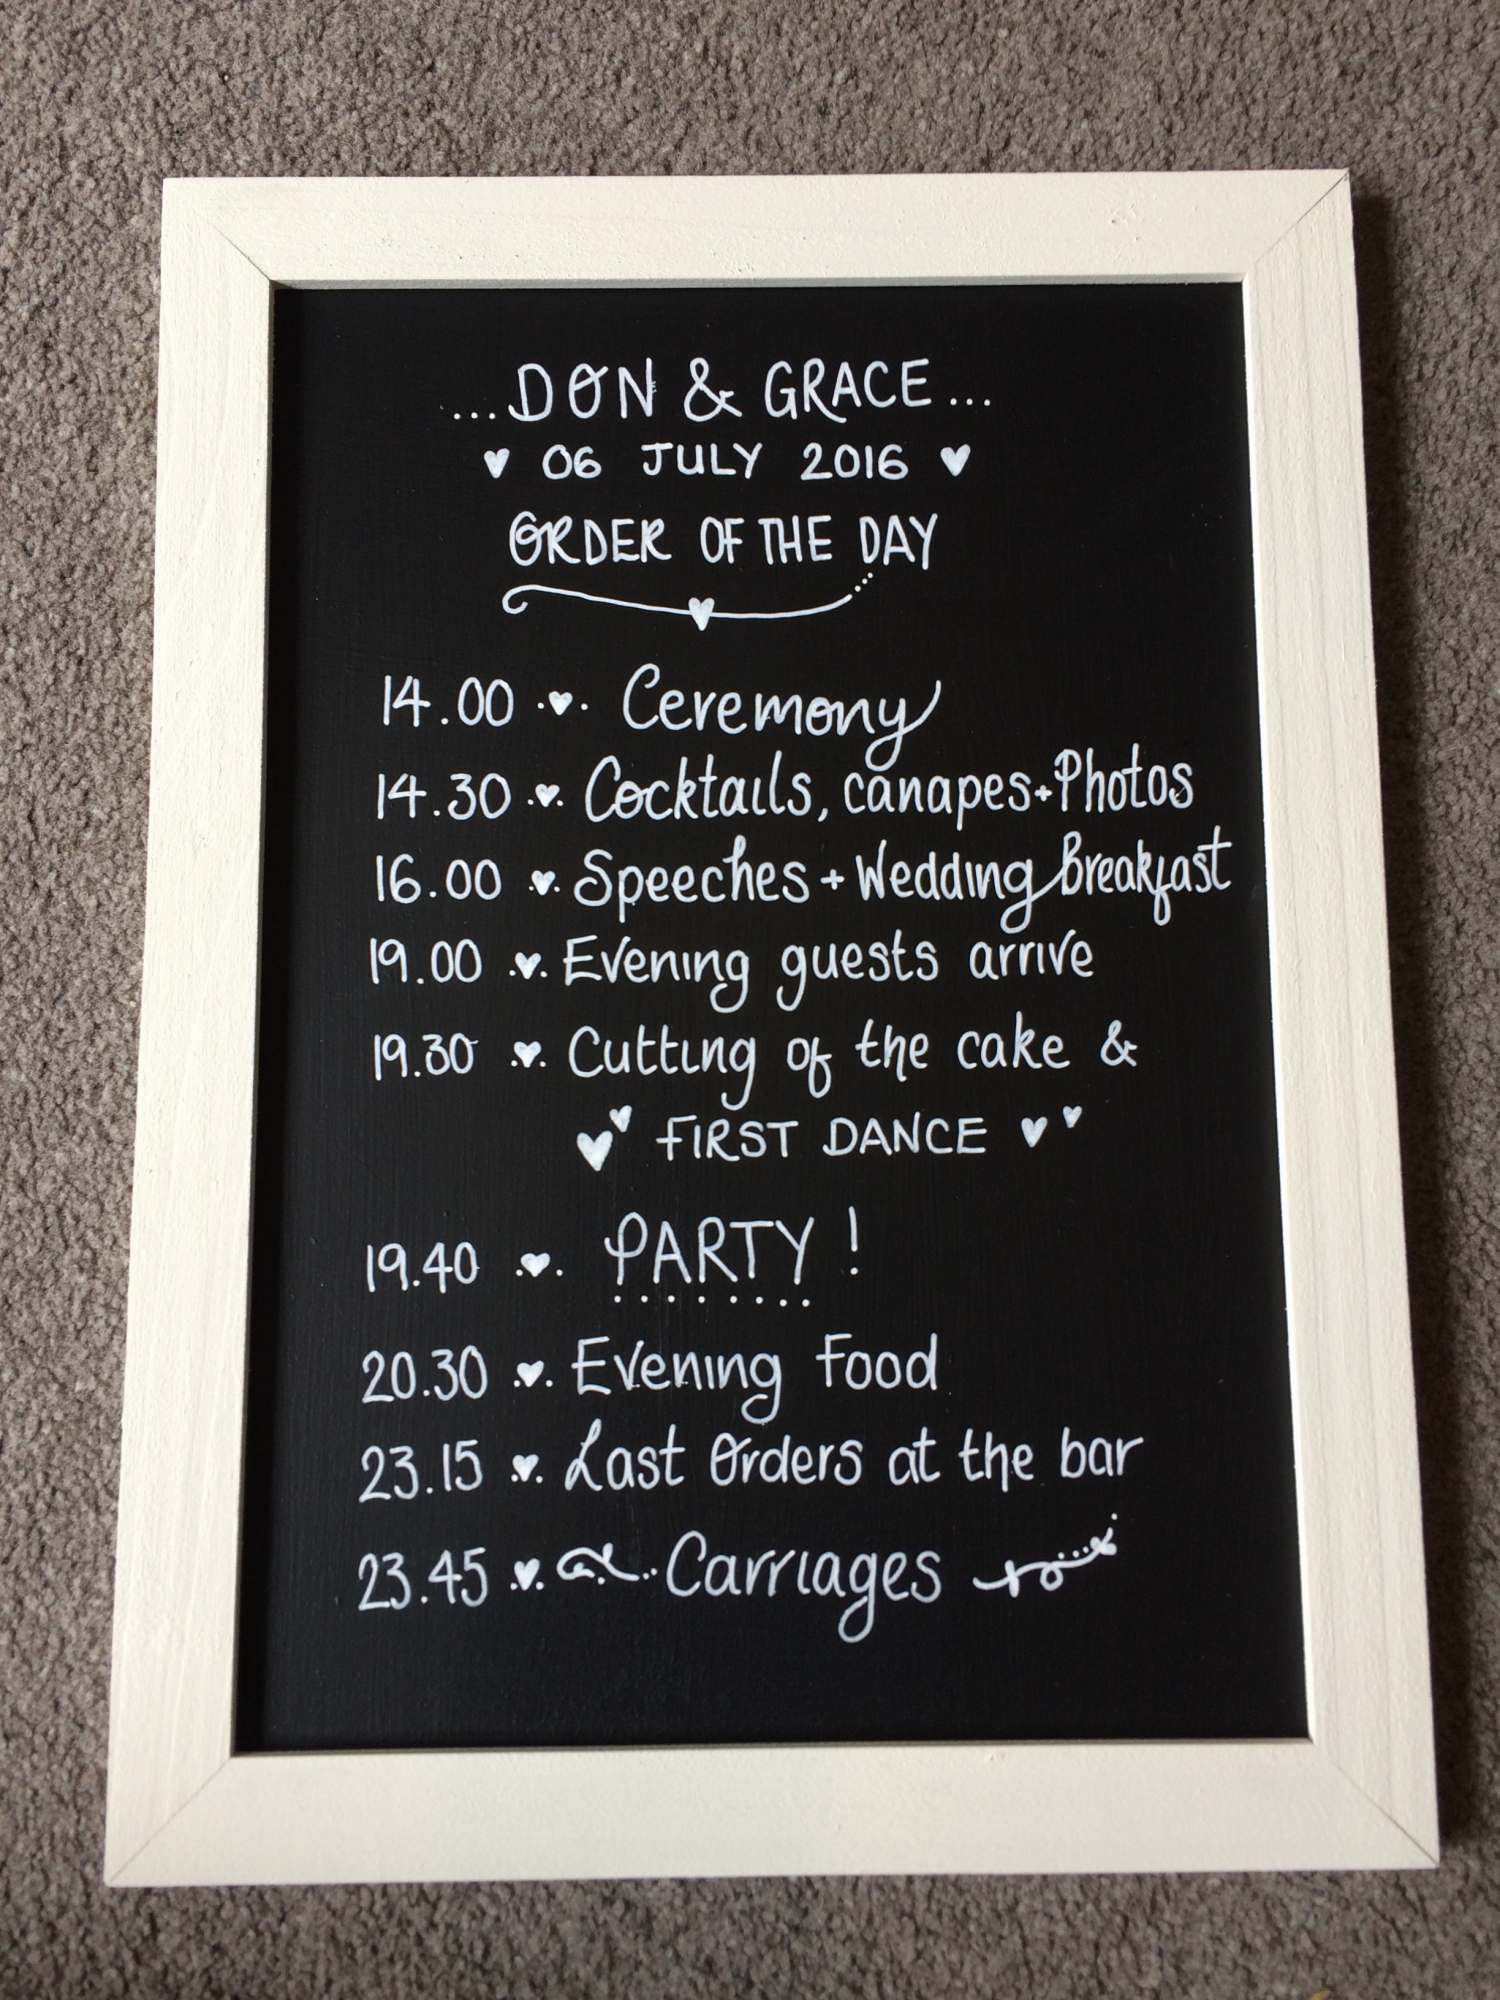 ...DON & GRACE...
♥ 06 JULY 2016 ♥
ORDER OF THE DAY
14.00 .♥. Ceremony
14.30 .♥. Cocktails, canapes + Photos
16.00 .♥. Speeches + Wedding Breakfast
19.00 .♥. Evening guests arrive
19.30 .♥. Cutting of the cake &
♥♥ FIRST DANCE ♥♥
19.40 .♥. PARTY !
20.30 .♥. Evening Food
23.15 .♥. Last Orders at the bar
23.45 .♥. Carriages